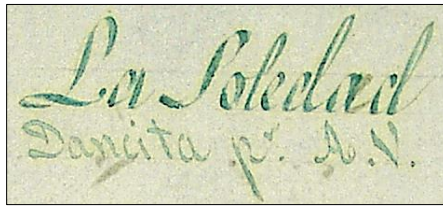 La Soledad
Dancita pr. A.V.